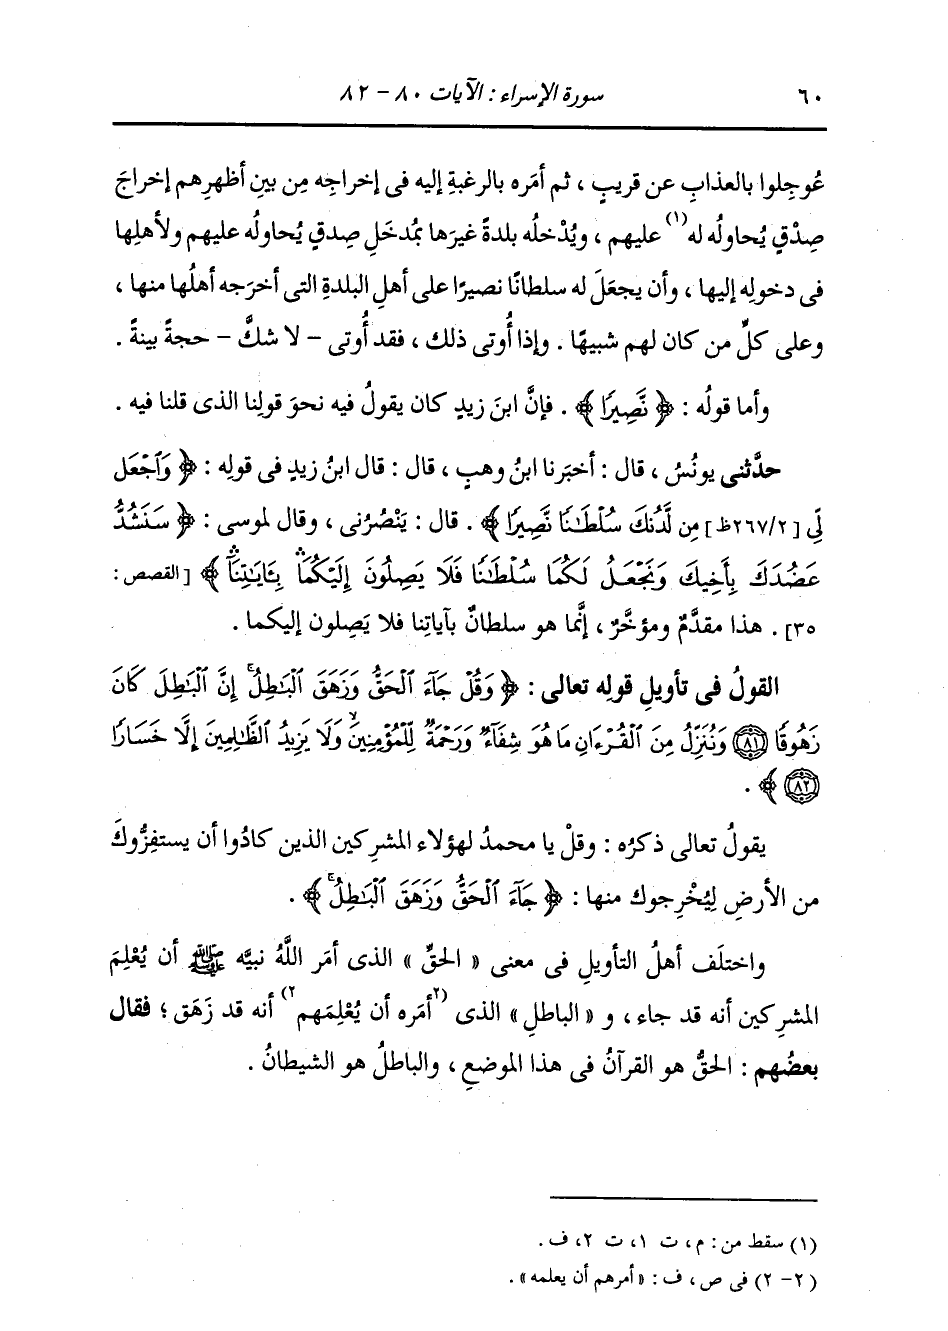 ٦٠ سورة الإسراء : الآيات ٨٠ - ٨٢
عُوجِلوا بالعذابِ عن قريبٍ ، ثم أمَره بالرغبةِ إليه فى إخراجِه مِن بينِ أظهرِهم إخراجَ
صِدْقٍ يُحاولُه له(١) عليهم ، ويُدْخلُه بلدةً غيرَها بمُدخَلِ صِدقٍ يُحاولُه عليهم ولأهلِها
فى دخولِه إليها ، وأن يجعَلَ له سلطانًا نصيرًا على أهلِ البلدةِ التى أخرَجه أهلُها منها ،
وعلى كلِّ من كان لهم شبيهًا . وإذا أُوتى ذلك ، فقد أُوتى - لا شكَّ - حجةً بينةً .
وأما قولُه : ﴿ نَّصِيرًا ﴾ . فإنَّ ابنَ زيدٍ كان يقولُ فيه نحوَ قولِنا الذى قلنا فيه .
حدَّثنى يونُسُ ، قال : أخبَرنا ابنُ وهبٍ ، قال : قال ابنُ زيدٍ فى قولِه : ﴿ وَٱجْعَل
لِّى [٢٦٧/٢ظ] مِن لَّدُنكَ سُلْطَـٰنًا نَّصِيرًا ﴾ . قال : يَنْصُرُنى ، وقال لموسى : ﴿ سَنَشُدُّ
عَضُدَكَ بِأَخِيكَ وَنَجْعَلُ لَكُمَا سُلْطَـٰنًا فَلَا يَصِلُونَ إِلَيْكُمَا ۛ بِـَٔايَـٰتِنَا ۛ ﴾ [القصص :
٣٥] . هذا مقدَّمٌ ومؤخَّرٌ ، إنَّما هو سلطانٌ بآياتِنا فلا يَصِلون إليكما .
القولُ فى تأويلِ قولِه تعالى : ﴿ وَقُلْ جَآءَ ٱلْحَقُّ وَزَهَقَ ٱلْبَـٰطِلُ ۚ إِنَّ ٱلْبَـٰطِلَ كَانَ
زَهُوقًا ٨١ وَنُنَزِّلُ مِنَ ٱلْقُرْءَانِ مَا هُوَ شِفَآءٌ وَرَحْمَةٌ لِّلْمُؤْمِنِينَ ۙ وَلَا يَزِيدُ ٱلظَّـٰلِمِينَ إِلَّا خَسَارًا
٨٢ ﴾ .
يقولُ تعالى ذكرُه : وقلْ يا محمدُ لهؤلاء المشرِكين الذين كادُوا أن يستفِزُّوكَ
من الأرضِ لِيُخْرِجوك منها : ﴿ جَآءَ ٱلْحَقُّ وَزَهَقَ ٱلْبَـٰطِلُ ۚ ﴾ .
واختلَف أهلُ التأويلِ فى معنى « الحقِّ » الذى أمَر اللَّهُ نبيَّه ﷺ أن يُعْلِمَ
المشرِكين أنه قد جاء ، و « الباطلِ » الذى (٢أمَره أن يُعْلِمَهم٢) أنه قد زَهَق ؛ فقال
بعضُهم : الحقُّ هو القرآنُ فى هذا الموضعِ ، والباطلُ هو الشيطانُ .
(١) سقط من : م ، ت ١ ، ت ٢ ، ف .
(٢ - ٢) فى ص ، ف : « أمرهم أن يعلمه » .